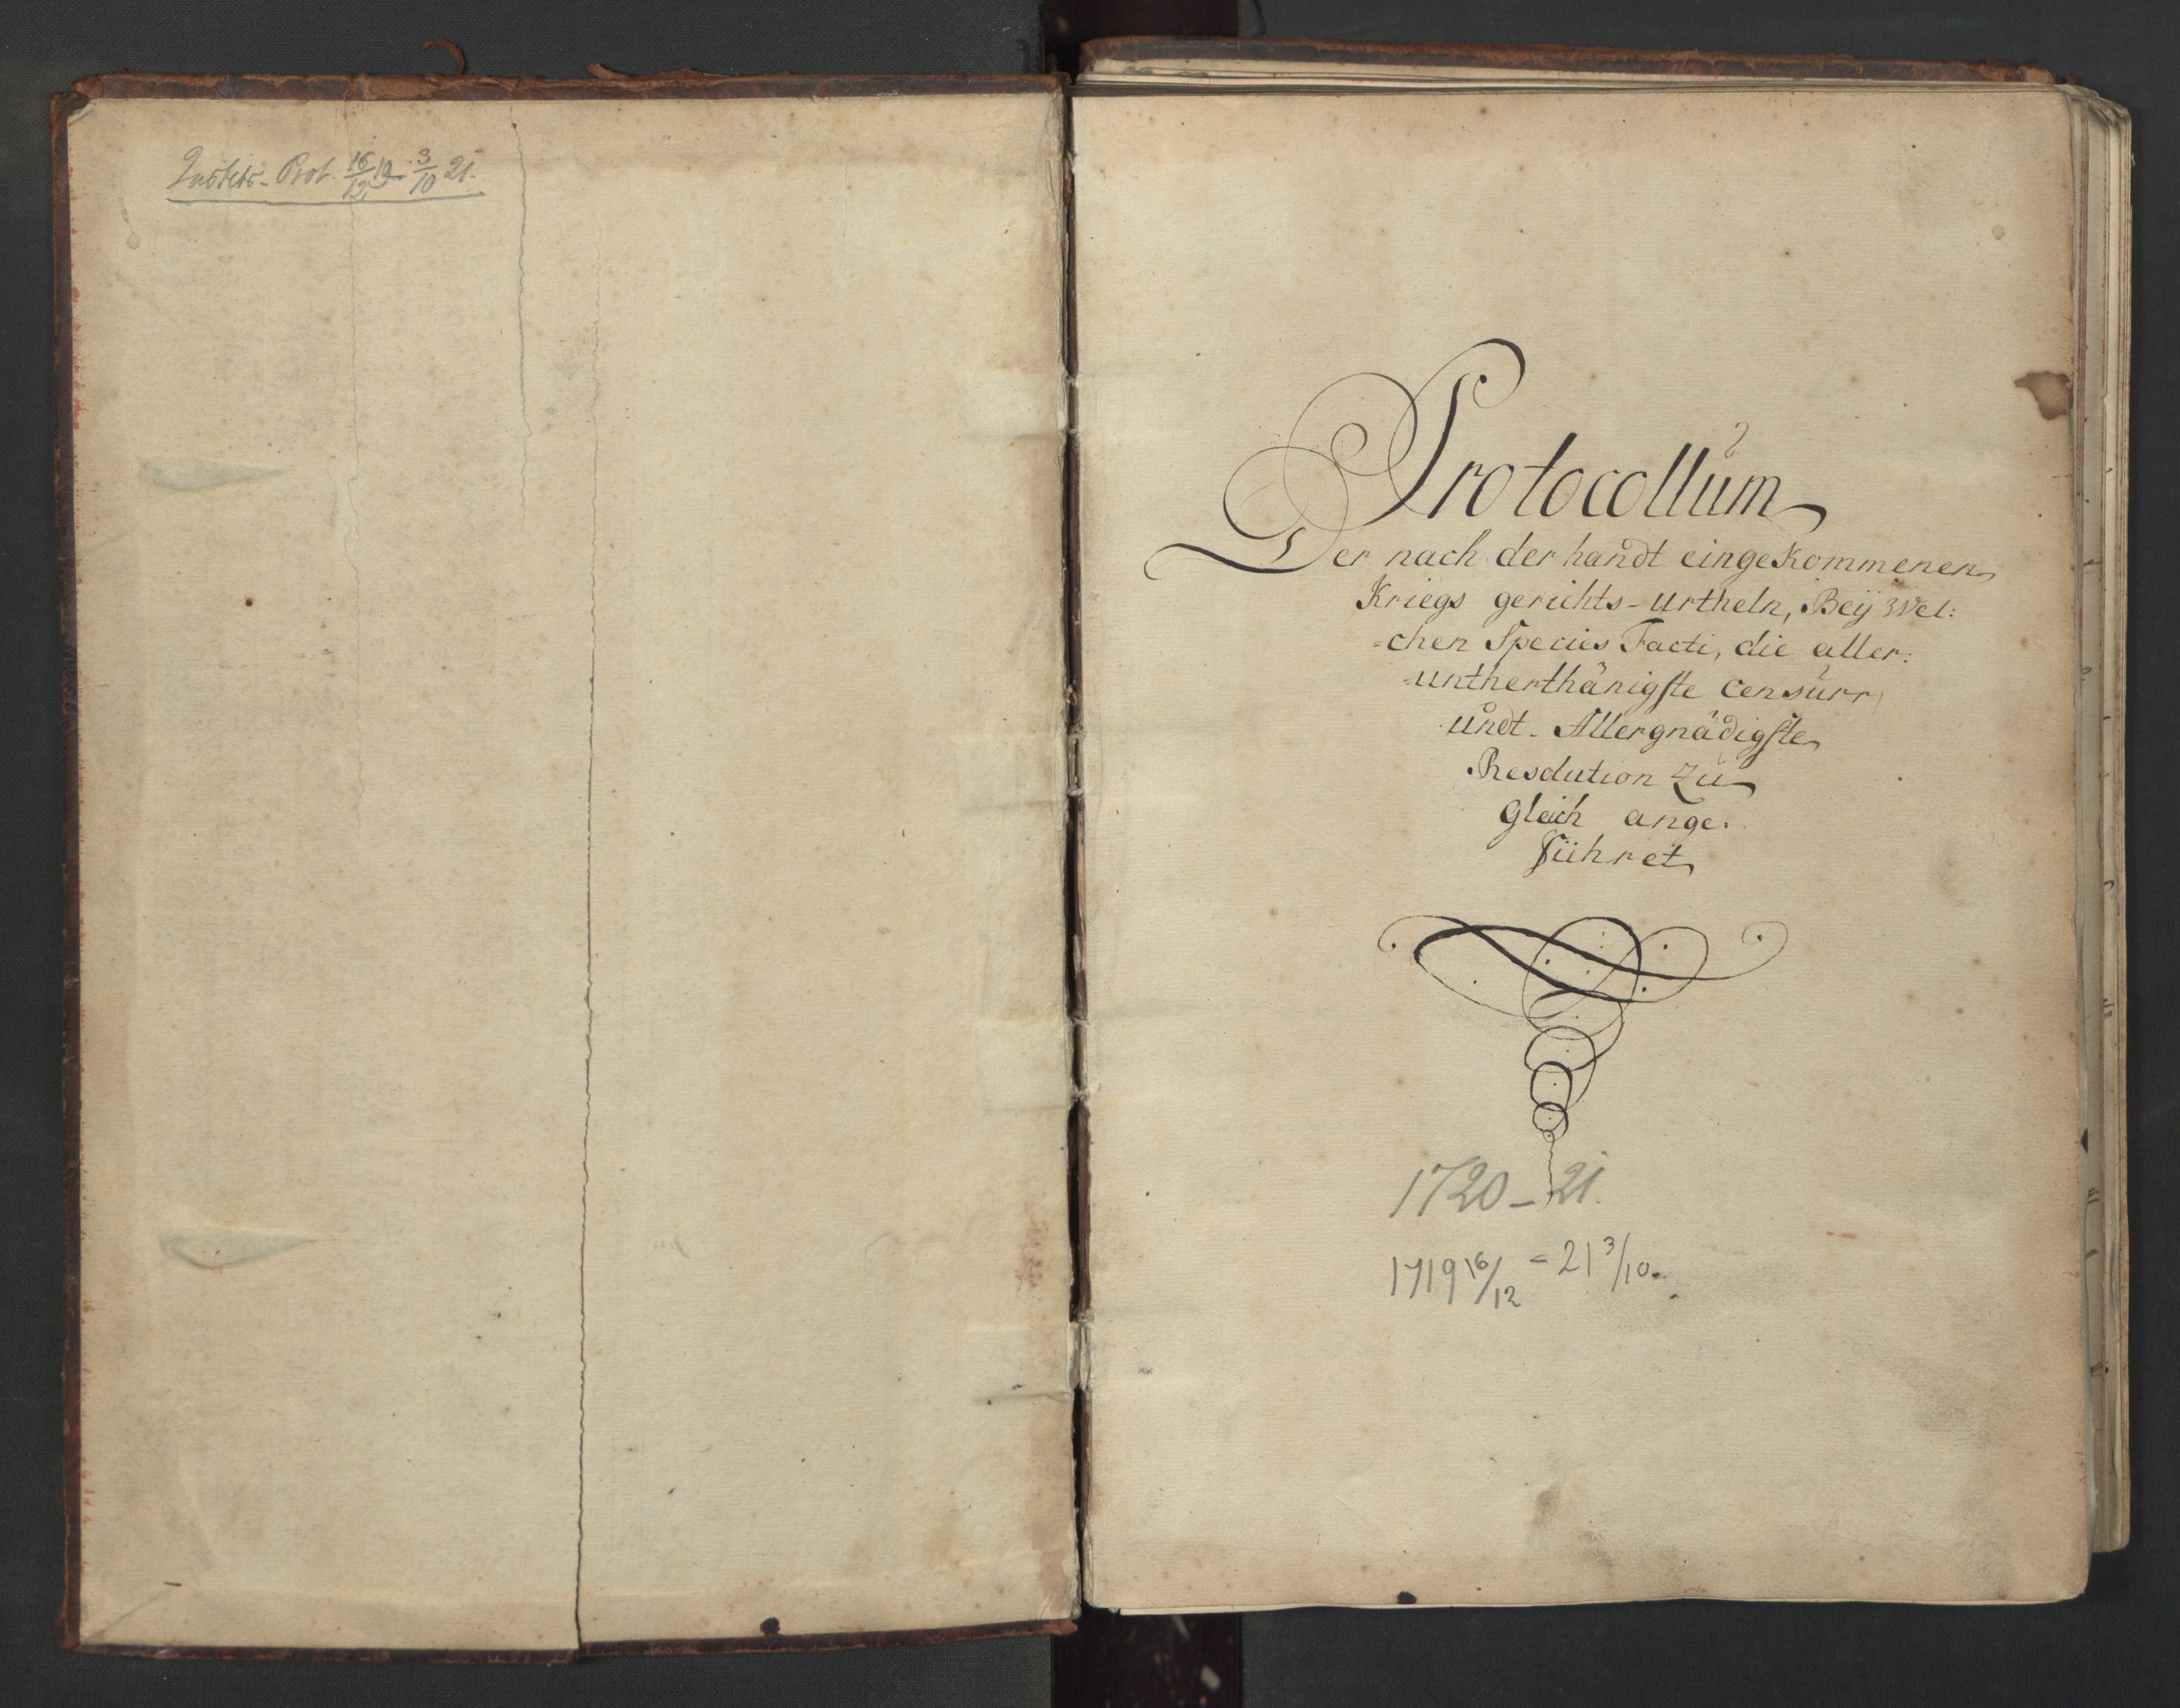 Justits-Prot. 16/12 19 - 3/10 21.
Protocollum
Der nach der handt eingekommenen
Kriegs gerichts-Urtheln, Beÿ Wel:
=chen Species Facti, die aller:
=untherthänigste Censurr
undt Allergnädigste
Resolution Zu
Gleich ange.
Führet
1720-21.
1719 16/12 = 21 3/10.